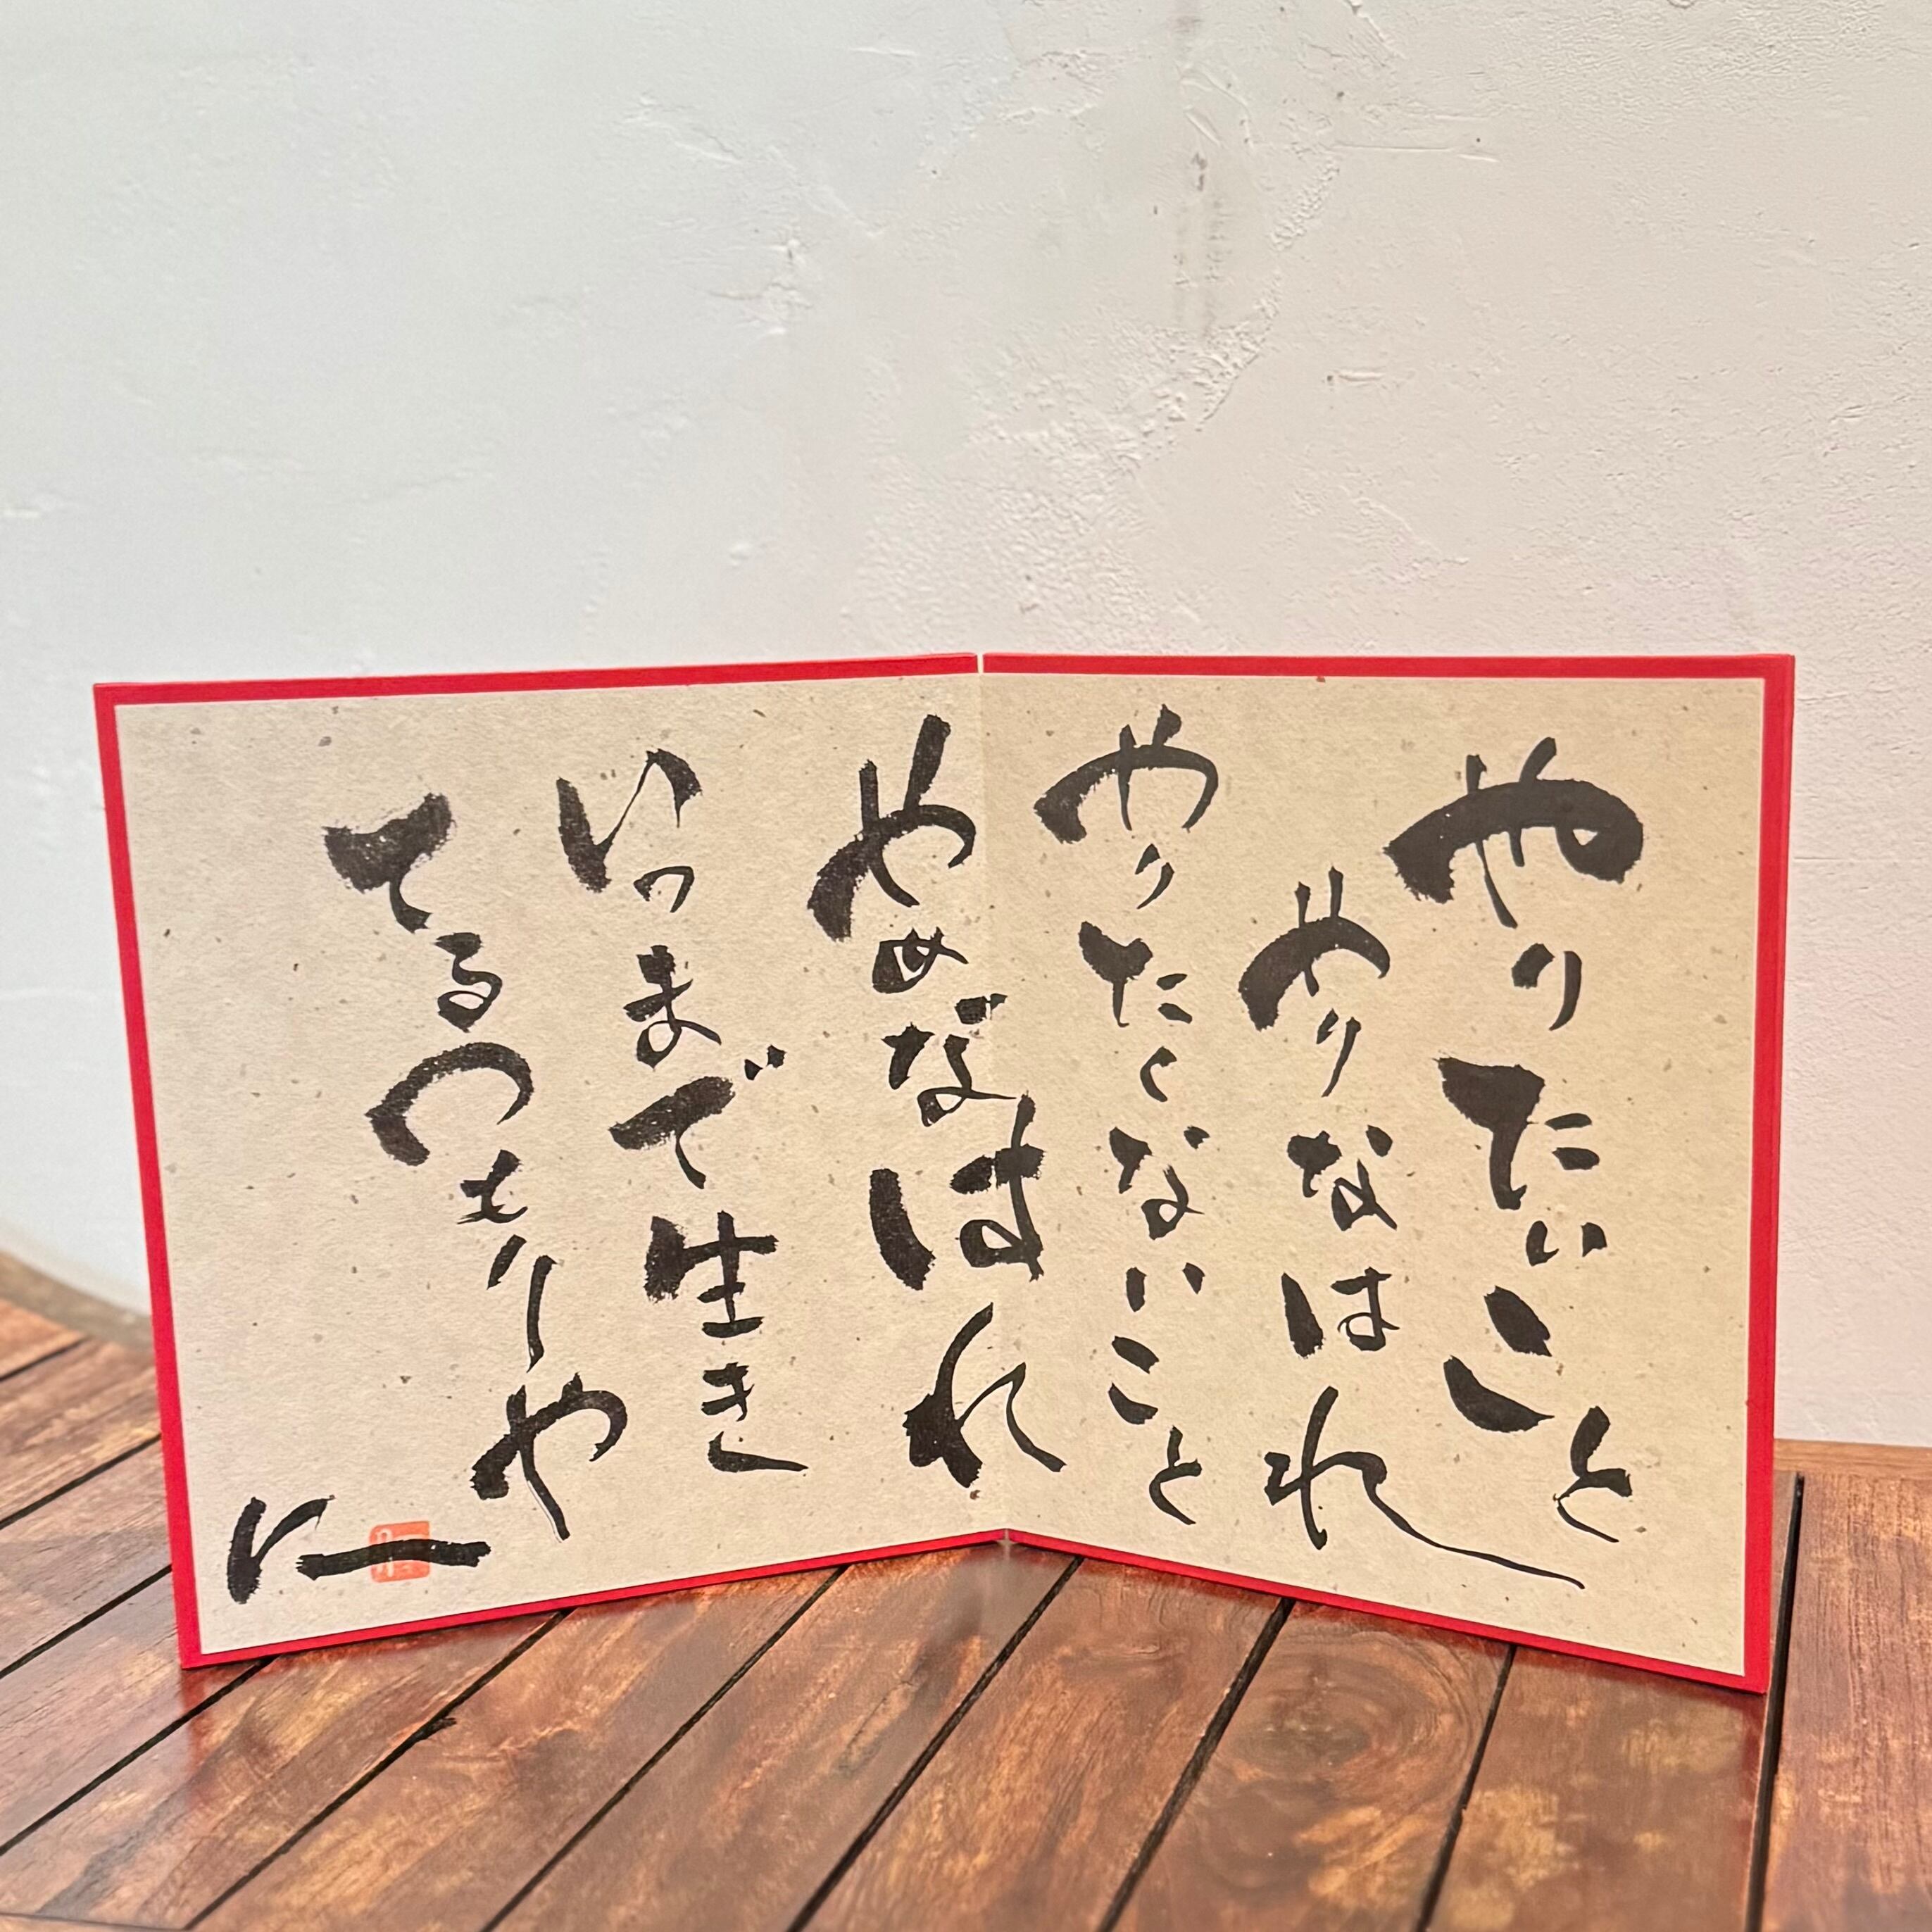 やりたいこと
やりなはれ
やりたくないこと
やめなはれ
いつまで生き
てるつもりや